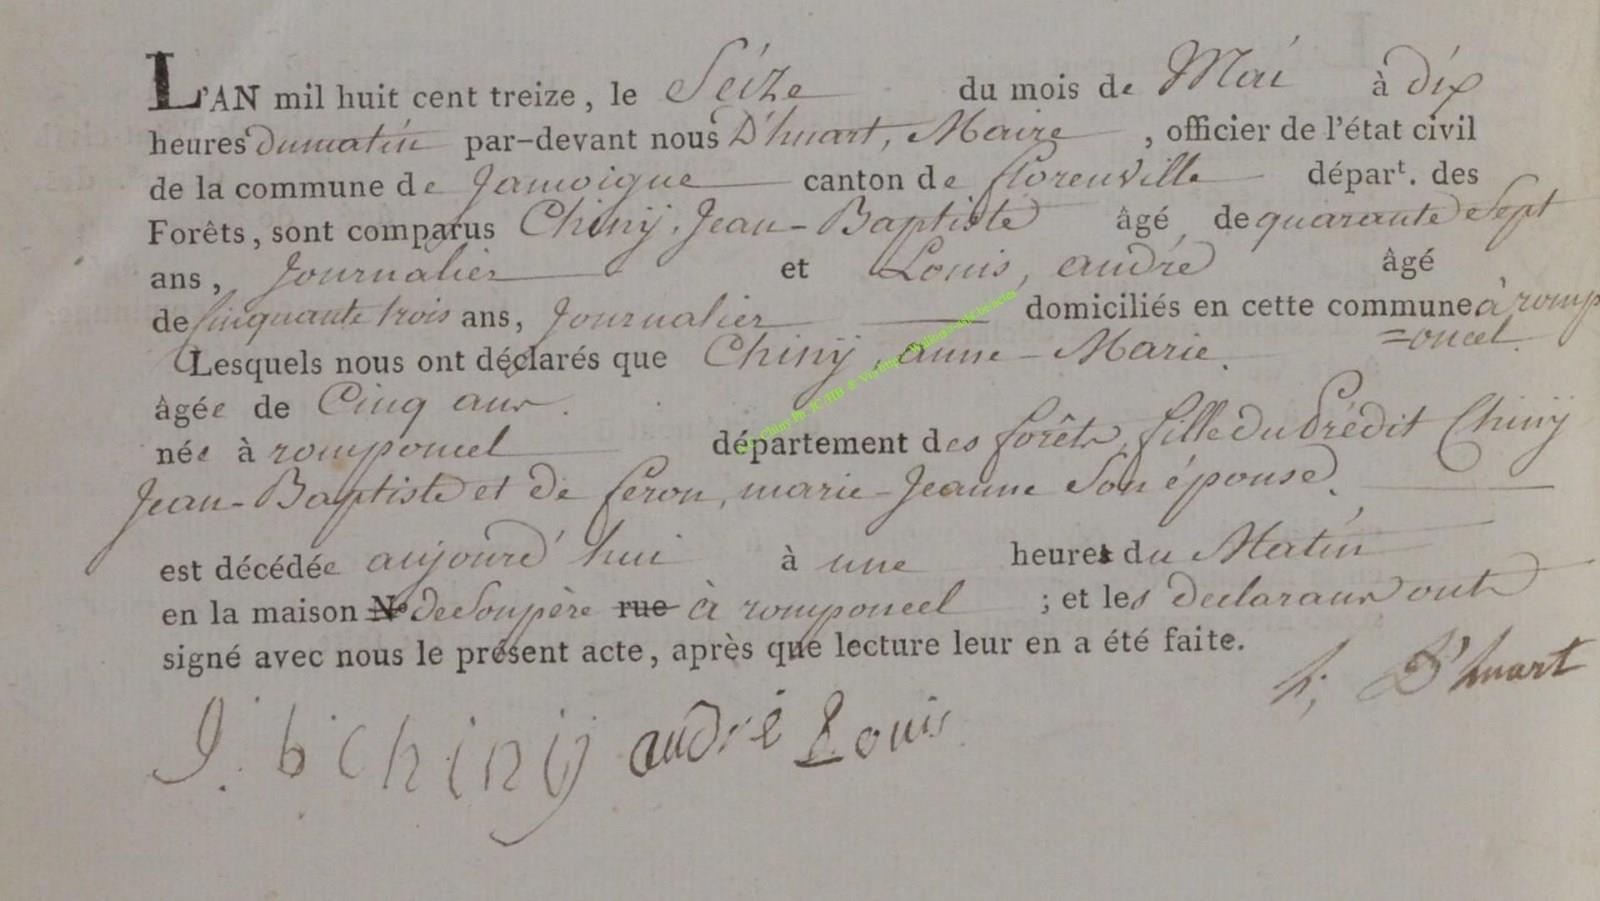 L'AN mil huit cent treize, le Seize du mois de Mai à dix
heures du matin par-devant nous D'huart, Maire, officier de l'état civil
de la commune de Jamoigne canton de florenville départ. des
Forêts, sont comparus Chinÿ, Jean-Baptiste âgé de quarante Sept
ans, Journalier et Louis, andré âgé
de Cinquante trois ans, Journalier domiciliés en cette commune à romp
=oncel.
Lesquels nous ont déclarés que Chinÿ, anne-Marie.
âgée de Cinq ans.
née à romponcel département des forêts, fille du Prédit Chinÿ
Jean-Baptiste et de feron, marie-Jeanne Son épouse.
est décédée aujourd'hui à une heures du Matin
en la maison No de Son père rue à romponcel ; et les declarans ont
signé avec nous le présent acte, après que lecture leur en a été faite.
h; D'huart
J. b Chinÿ andré Louis